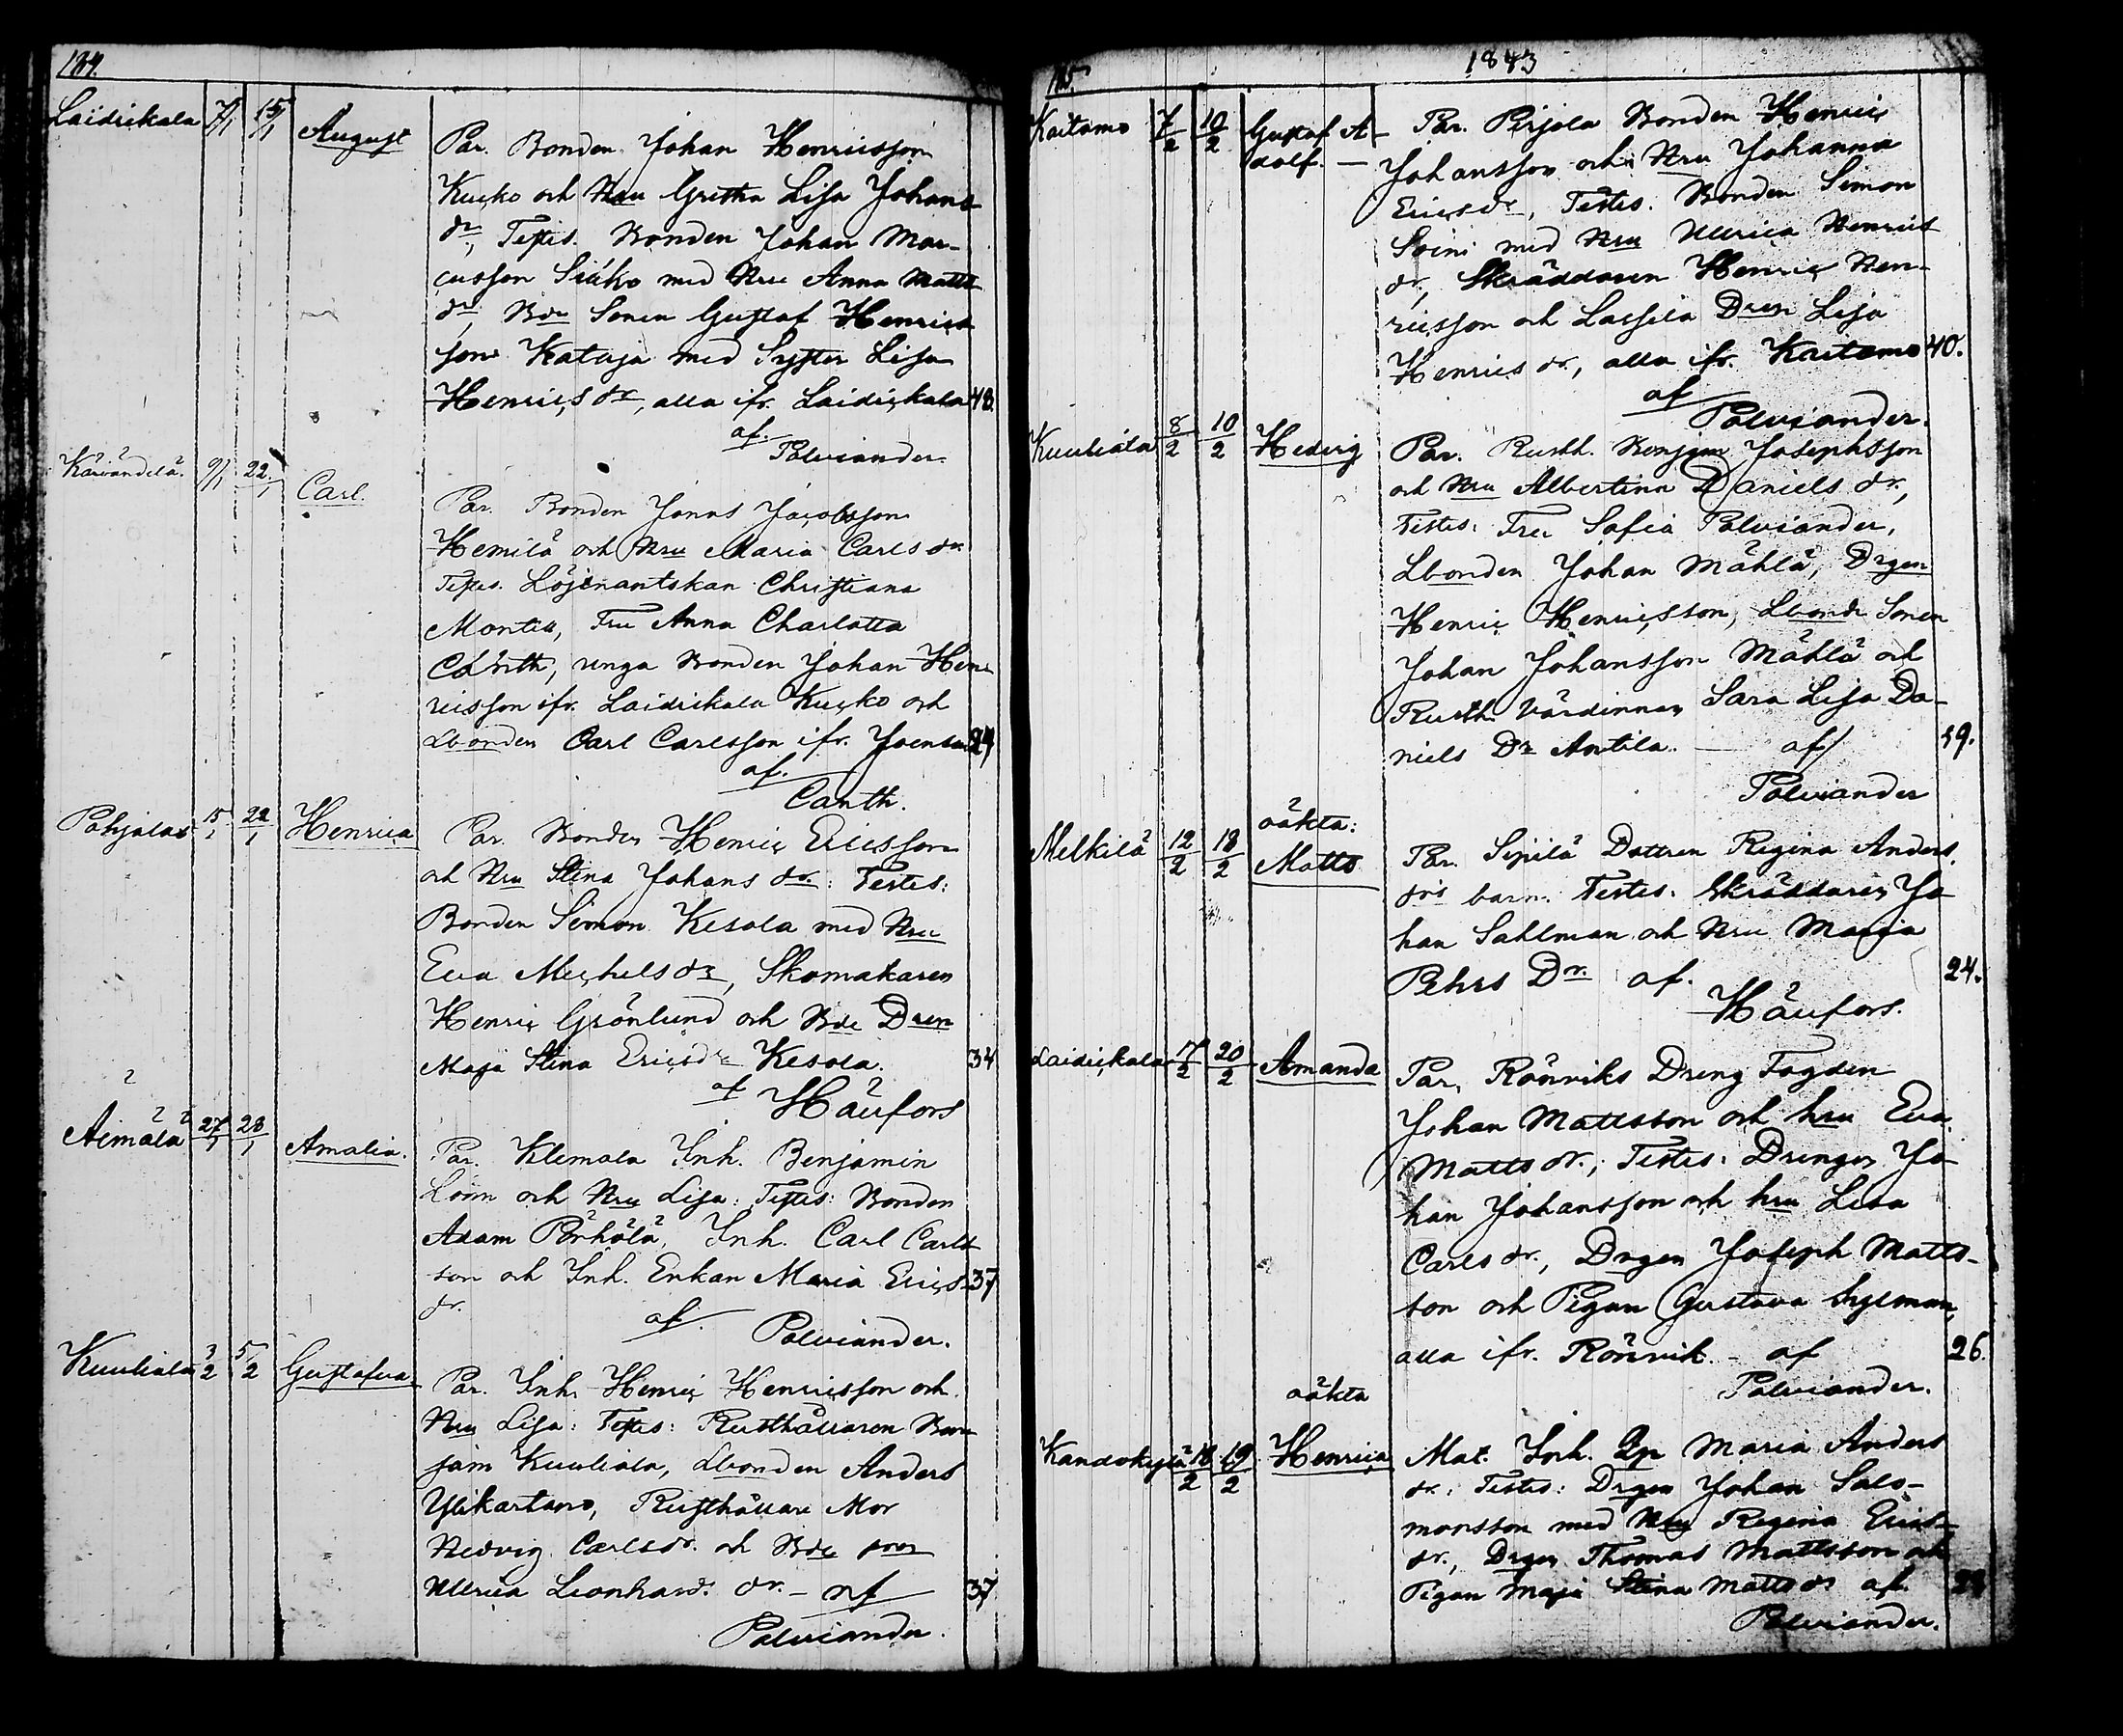 184.
Laidickala 7/1 15/1 August
Par. Bonden Johan Henricsson
Kucko och Hru Gretha Lisa Johans
dr, Testes. Bonden Johan Mar-
cusson Siuko med Hru Anna Matts
dr, Bde Sonen Gustaf Henrics
son Kataja med Syster Lisa
Henrics dr, alla ifr. Laidickala 48.
af.
Palviander.
9/1 22/1 Carl.
Par. Bonden Jonas Jacobsson
Hemilä och Hru Maria Carls dr.
Testes. Löjtnantskan Christiana
Fru Anna Charlotta
Canth, unga Bonden Johan Hen-
ricsson ifr. Laidickala Kucko och
Lbonden Carl Carlsson ifr. Joensuu 29
af.
Canth.
Pohjalas 15/1 22/1 Henrica
Par. Bonden Henric Ericsson
och Hru Stina Johans dr.: Testes:
Bonden Simon Kesola med Hru
Eva Michels dr, Skomakaren
Henric Grönlund och Bde Dren
Maja Stina Ericsdr Kesola. 34
af
Häufors
Äimälä 27/1 28/1 Amalia.
Par. Klemola Inh. Benjamin
Lönn och Hru Lisa: Testes: Bonden
Adam Pärhälä, Inh. Carl Carls
son och Inh. Enkan Maria Erics 37
dr.
af.
Palviander.
Kuuliala 3/2 5/2 Gustafva
Par. Inh. Henric Henricsson och
Hru Lisa: Testes: Rusthållaren Ben
jam Kuuliala, Lbonden Anders
Ylikartano, Rusthållare Mor
Hedvig Carlsdr. och Bde
Ulrica Leonhards dr. – af 37
Palviander.
185.
1843
Kaitamo 7/2 10/2 Gustaf A-
dolf. —
Par. Pirjola Bonden Henric
Johansson och Hru Johanna
Ericsdr, Testes. Bonden Simon
Soini med Hru Ulrica Henrics
dr, Skräddaren Henric Hen-
ricsson och Lassila Dren Lisa
Henrics dr., alla ifr. Kaitamo 40.
af
Palviander.
Kuuliala 8/2 10/2 Hedvig
Par. Rusth. Benjam Josephsson
och Hru Albertina Daniels dr.,
Testes: Fru Sofia Palviander,
Lbonden Johan Mählä, Drgen
Henric Henricsson, Lbonde Sonen
Johan Johansson Mählä och
Rusth. Värdinnan Sara Lisa Da-
niels Dr Antila. — af 19.
Palviander
oäkta:
Melkilä 12/2 18/2 Matts
Par. Sipilä Dottren Regina Anders
drs barn. Testes. Skräddaren Jo
han Sahlman och Hru Maria
Pehrs Dr. af. 24.
Häufors.
Laidickala 17/2 20/2 Amanda
Par. Rönviks Dreng Fogden
Johan Mattsson och hru Eva
Matts dr.; Testes: Drengen Jo
han Johansson och hru Lisa
Carls dr., Drgen Joseph Matts-
son och Pigan Gustava
alla ifr. Rönvik. – af 26.
Palviander.
oäkta
18/2 19/2 Henrica
Mat. Inh. Qp Maria Anders
dr.: Testes: Drgen Johan Salo-
monsson med Hru Regina Erics
dr., Drgen Thomas Mattsson och
Pigan Maja Stina Matts dr af.
Palviander.